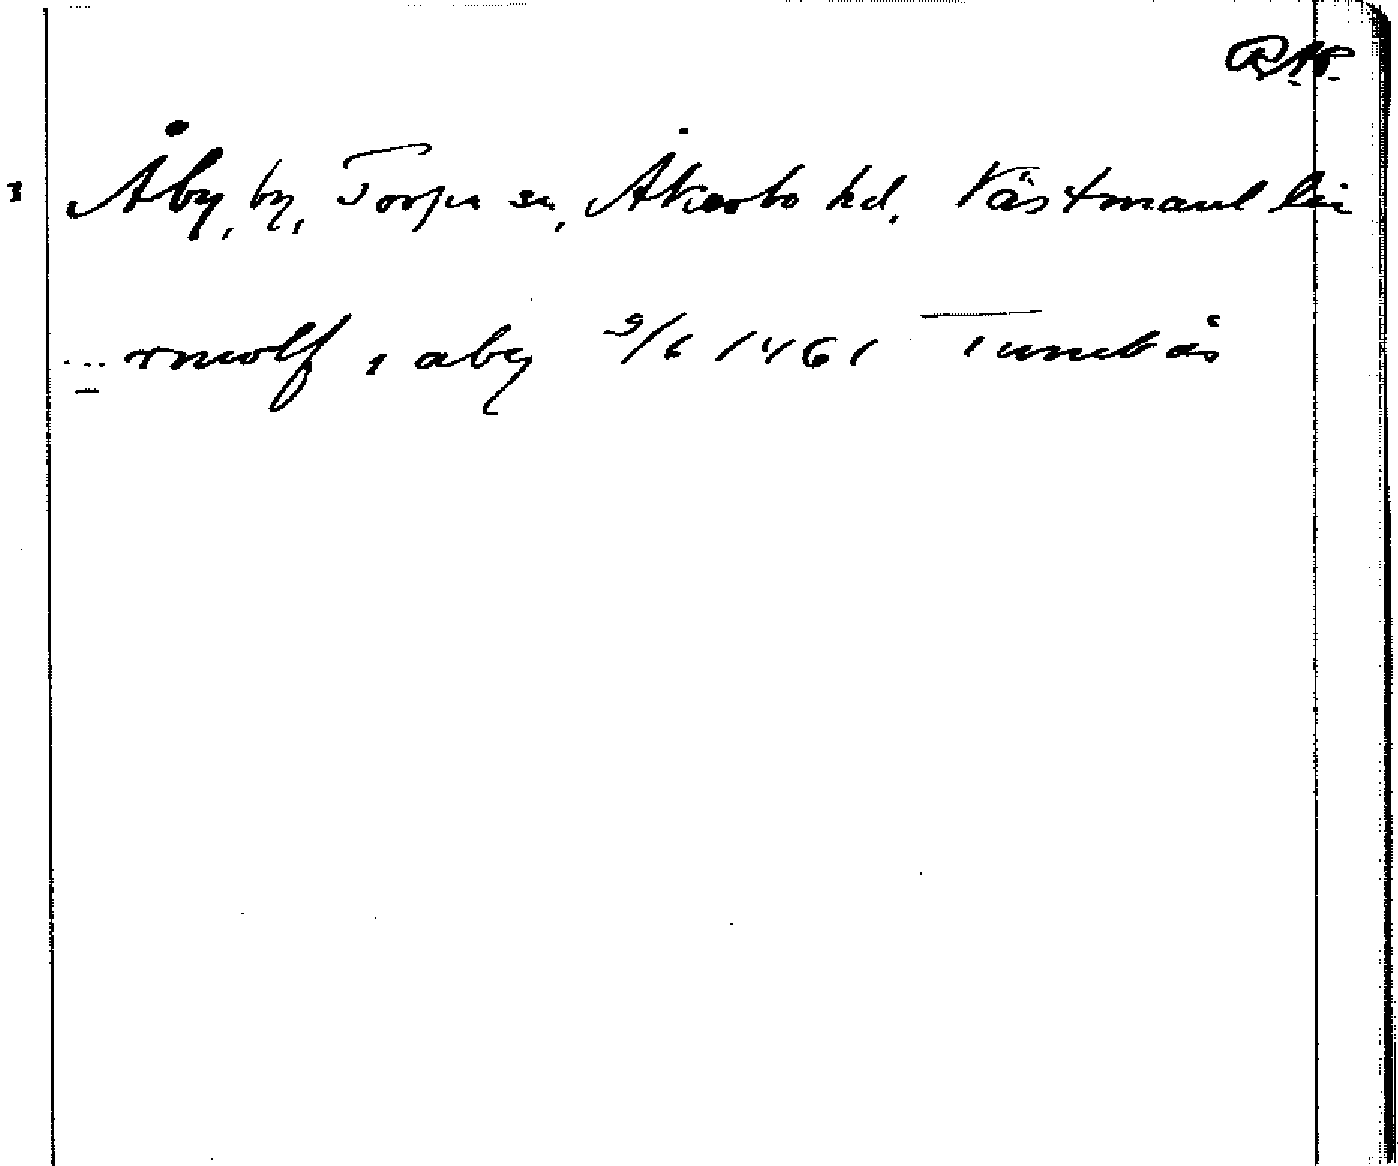 RAP.
Åby, by, Torpa sn, Åkerbo hd, Västmanl län
... rnwolf i aby 9/6 1461 Tunabås